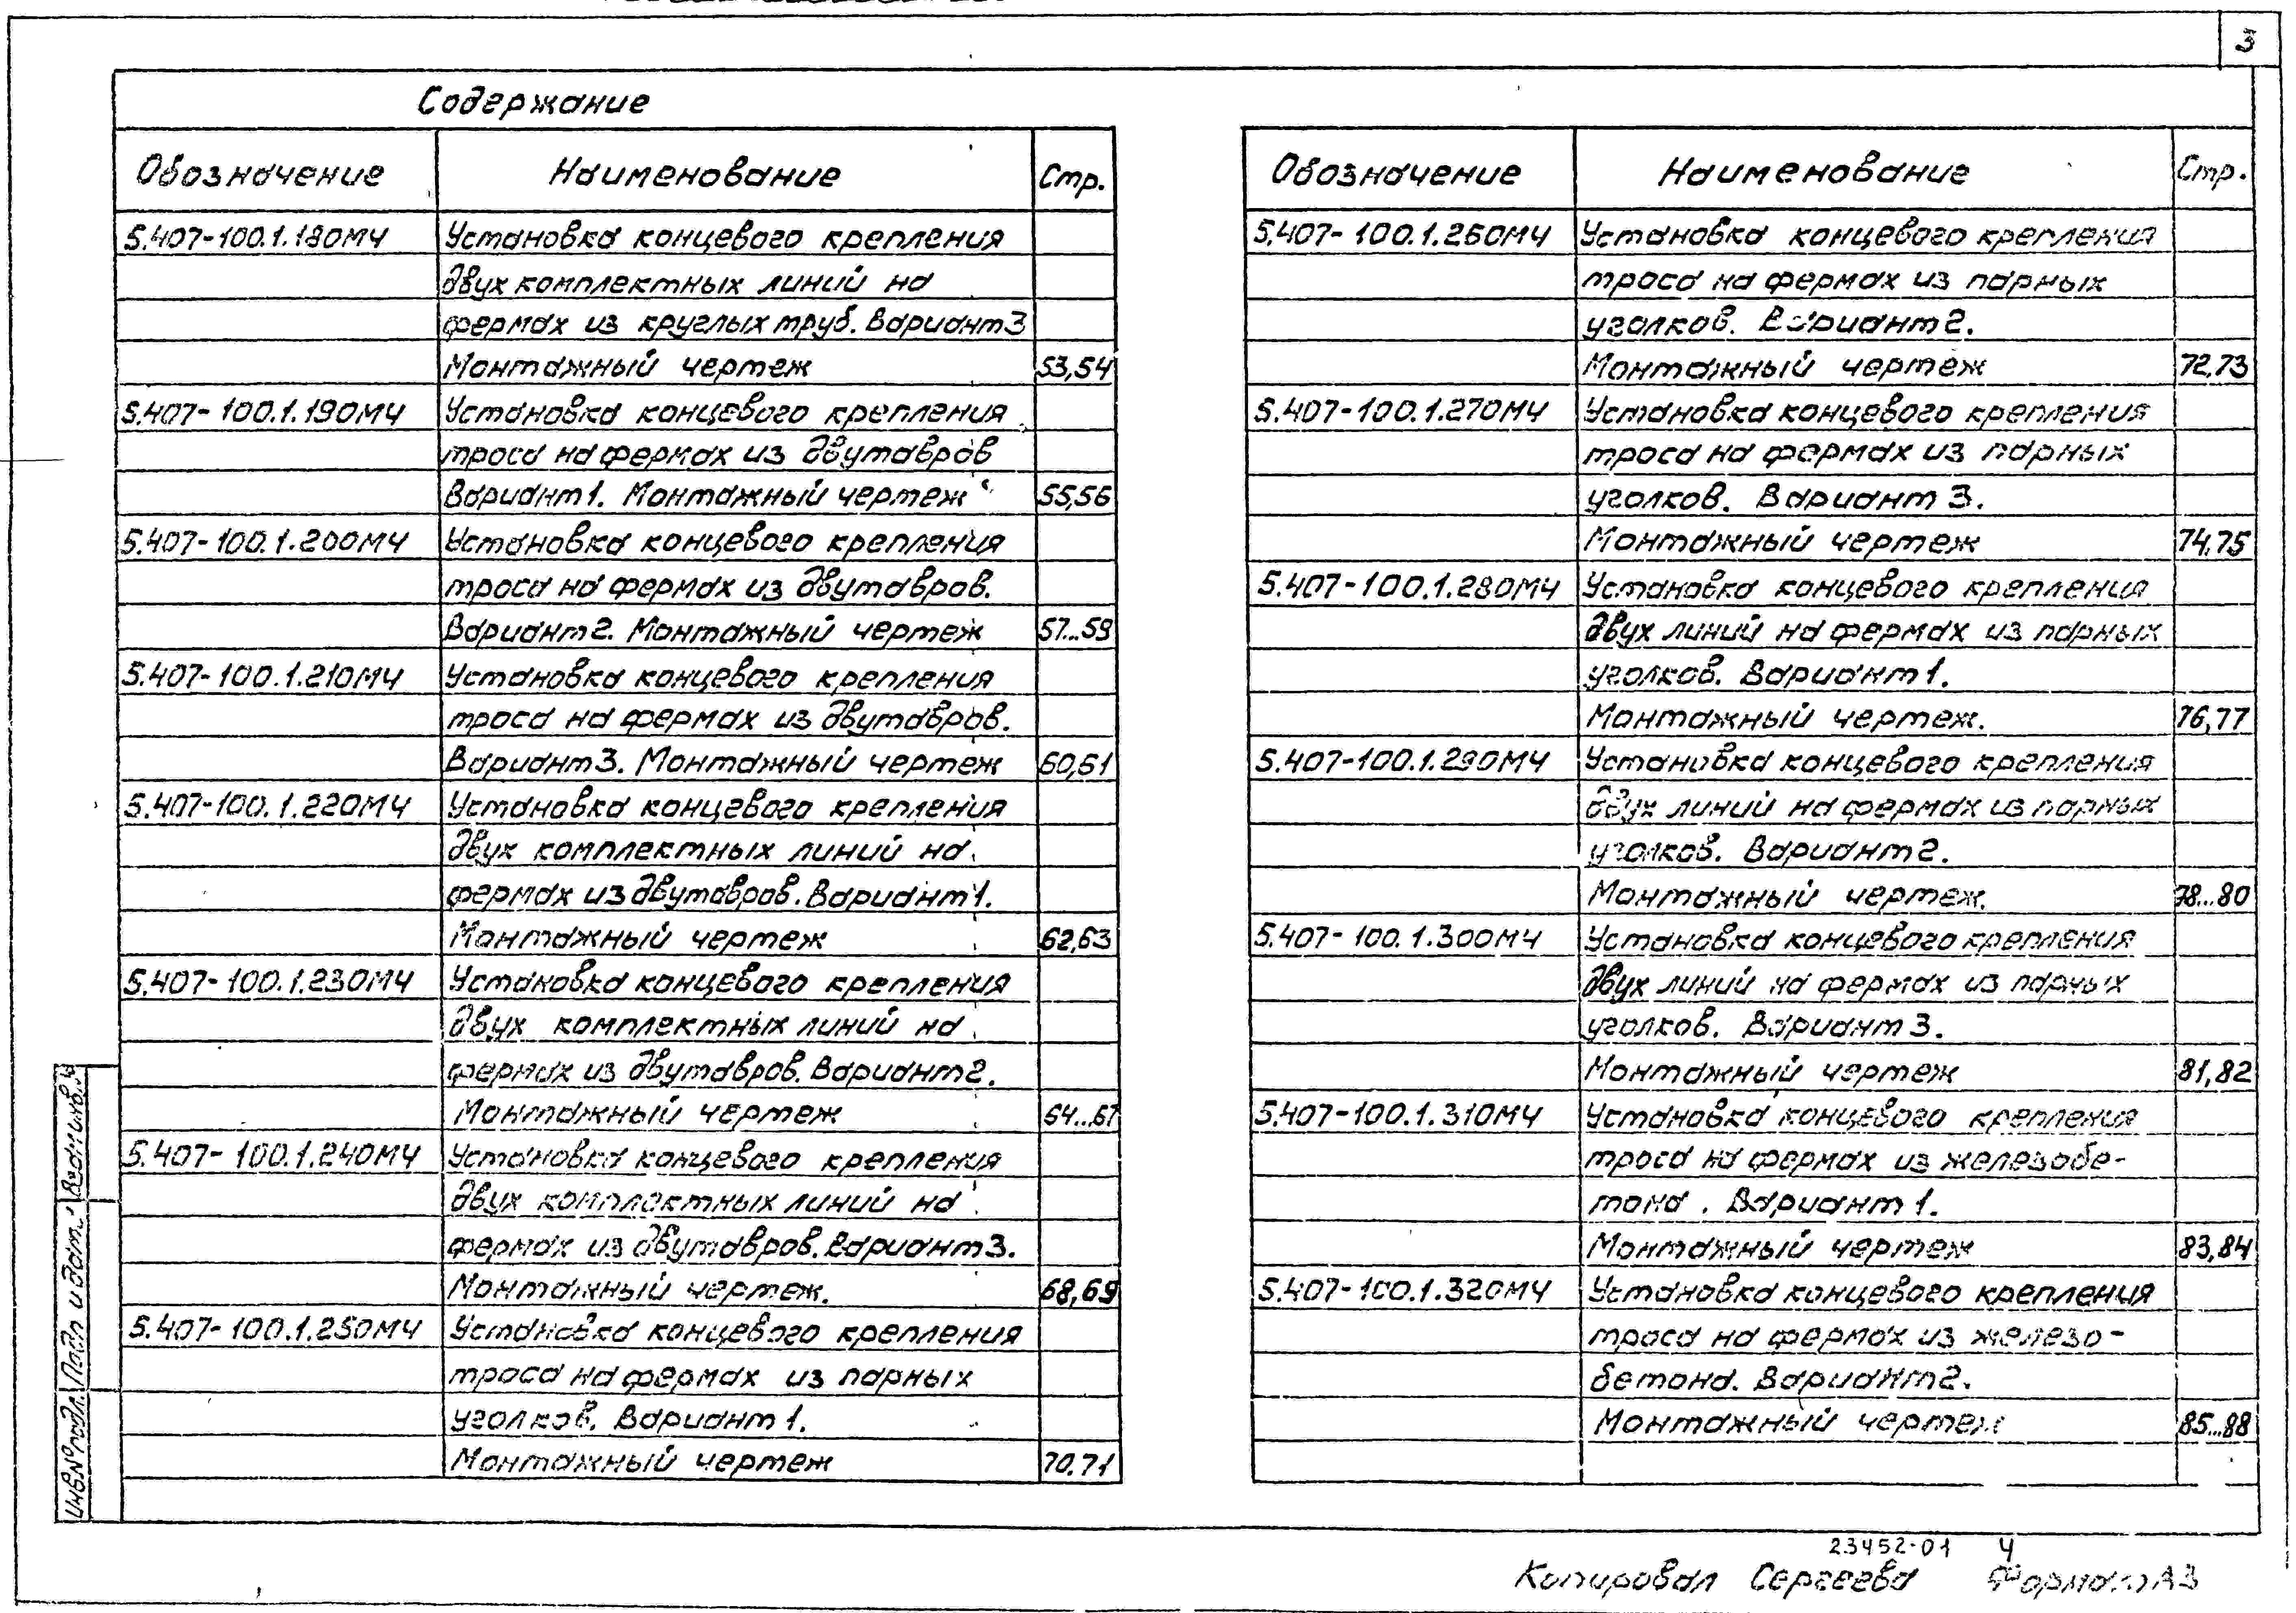 3
Содержание
Обозначение Наименование Стр.
5.407-100.1.180МЧ Установка концевого крепления
двух комплектных линий на
фермах из круглых труб. Вариант 3
Монтажный чертеж 53,54
5.407-100.1.190МЧ Установка концевого крепления
троса на фермах из двутавров
Вариант 1. Монтажный чертеж 55,56
5.407-100.1.200МЧ Установка концевого крепления
троса на фермах из двутавров.
Вариант 2. Монтажный чертеж 57...59
5.407-100.1.210МЧ Установка концевого крепления
троса на фермах из двутавров.
Вариант 3. Монтажный чертеж 60,61
5.407-100.1.220МЧ Установка концевого крепления
двух комплектных линий на
фермах из двутавров. Вариант 1.
Монтажный чертеж 62,63
5.407-100.1.230МЧ Установка концевого крепления
двух комплектных линий на
фермах из двутавров. Вариант 2.
Монтажный чертеж 64...67
5.407-100.1.240МЧ Установка концевого крепления
двух комплектных линий на
фермах из двутавров. Вариант 3.
Монтажный чертеж. 68,69
5.407-100.1.250МЧ Установка концевого крепления
троса на фермах из парных
уголков. Вариант 1.
Монтажный чертеж 70,71
Обозначение Наименование Стр.
5.407-100.1.260МЧ Установка концевого крепления
троса на фермах из парных
уголков. Вариант 2.
Монтажный чертеж 72,73
5.407-100.1.270МЧ Установка концевого крепления
троса на фермах из парных
уголков. Вариант 3.
Монтажный чертеж 74,75
5.407-100.1.280МЧ Установка концевого крепления
двух линий на фермах из парных
уголков. Вариант 1.
Монтажный чертеж. 76,77
5.407-100.1.290МЧ Установка концевого крепления
двух линий на фермах из парных
уголков. Вариант 2.
Монтажный чертеж. 78...80
5.407-100.1.300МЧ Установка концевого крепления
двух линий на фермах из парных
уголков. Вариант 3.
Монтажный чертеж 81,82
5.407-100.1.310МЧ Установка концевого крепления
троса на фермах из железобе-
тона. Вариант 1.
Монтажный чертеж 83,84
5.407-100.1.320МЧ Установка концевого крепления
троса на фермах из железо-
бетона. Вариант 2.
Монтажный чертеж 85...88
Инв.№подл. Подп и дат. Взам инв.
23452-01 4
Копировал Сергеева Формат А3